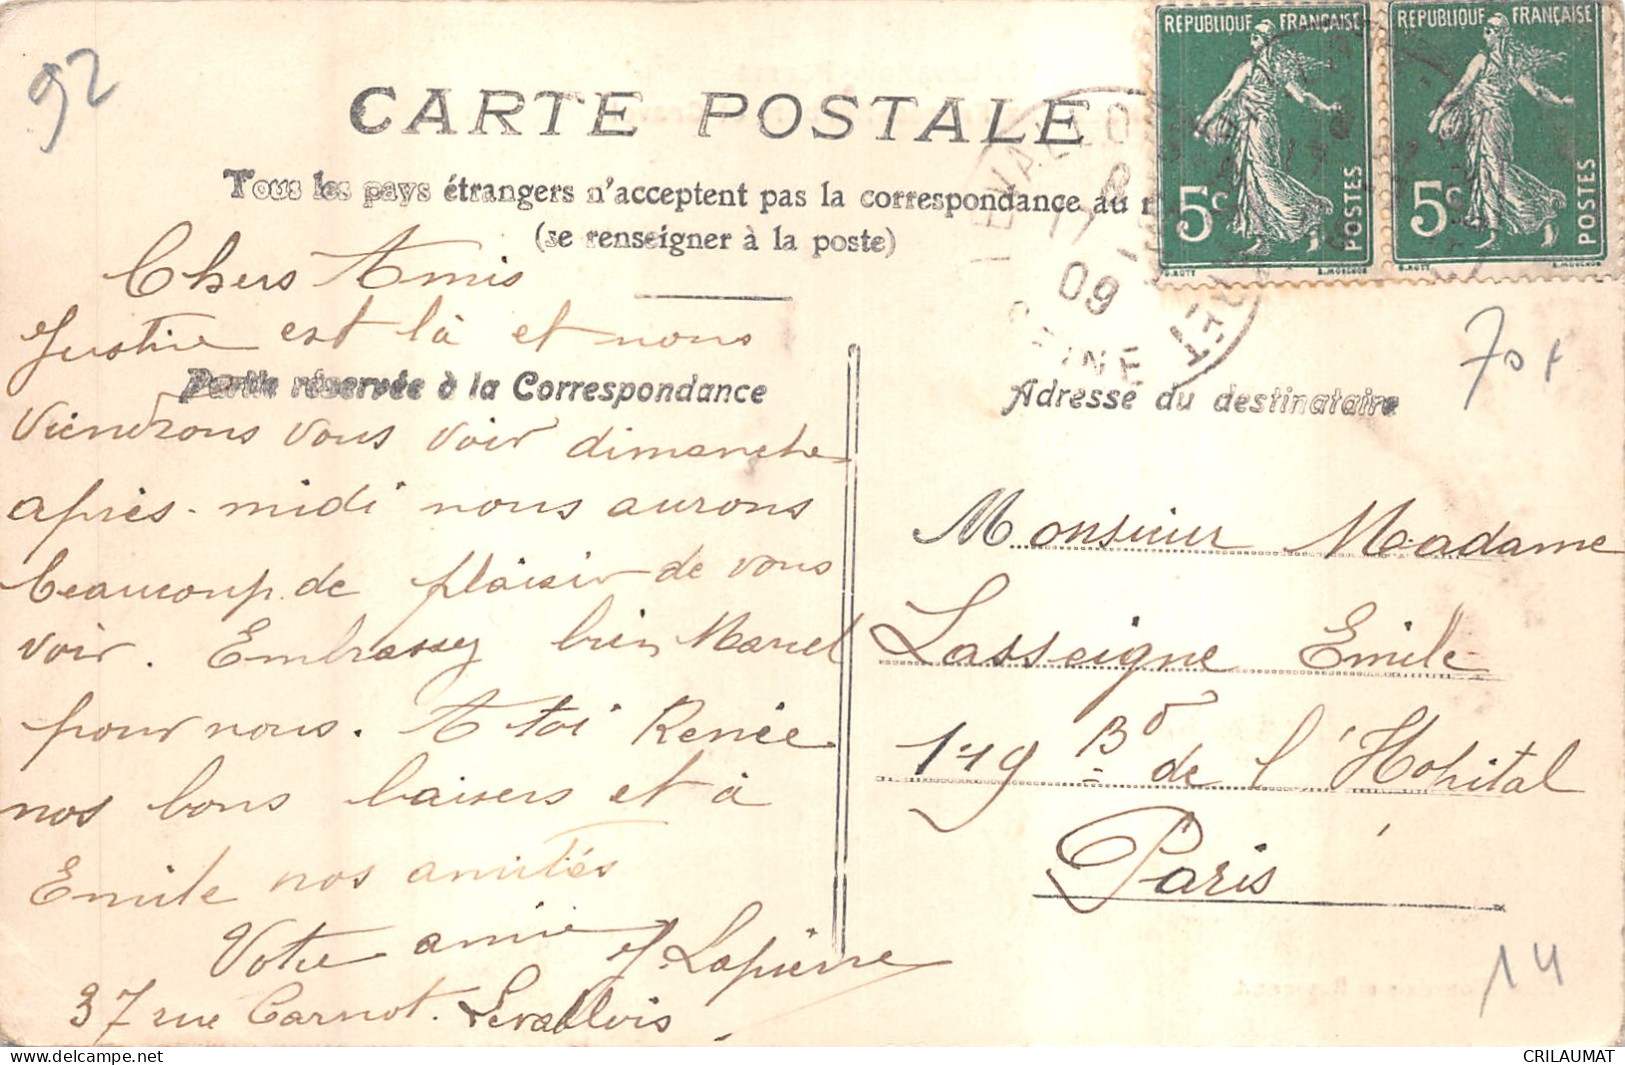 92
REPUBLIQUE FRANÇAISE
5c POSTES
REPUBLIQUE FRANÇAISE
5c POSTES
CARTE POSTALE
Tous les pays étrangers n'acceptent pas la correspondance au
(se renseigner à la poste)
17
09
Chers Amis
Justine est là et nous
Partie réservée à la Correspondance
viendrons vous voir dimanche
après-midi nous aurons
beaucoup de plaisir de vous
voir. Embrassez bien Marcel
pour nous. A toi Renée
nos bons baisers et à
Emile nos amitiés
Votre amie J. Lapierre
37 rue Carnot. Levallois
Adresse du destinataire
70
Monsieur Madame
Lasseigne Emile
149 Bd de l'Hopital
Paris
14
www.delcampe.net
CRILAUMAT